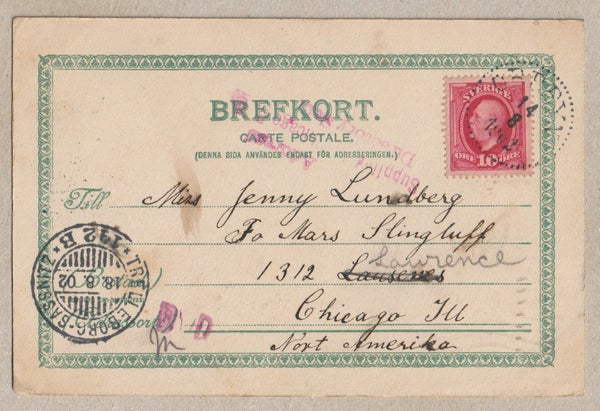 BREFKORT.
CARTE POSTALE.
(DENNA SIDA ANVÄNDES ENDAST FÖR ADRESSERINGEN.)
SVERIGE
ÖRE 10 ÖRE
14
8
Till
Miss Jenny Lundberg
Fo Mars Slingluff
Lawrence
1312
Chicago Ill
Nort Amerika
SASSNITZ * TRELLEBORG * 132 B *
18.8.02
D